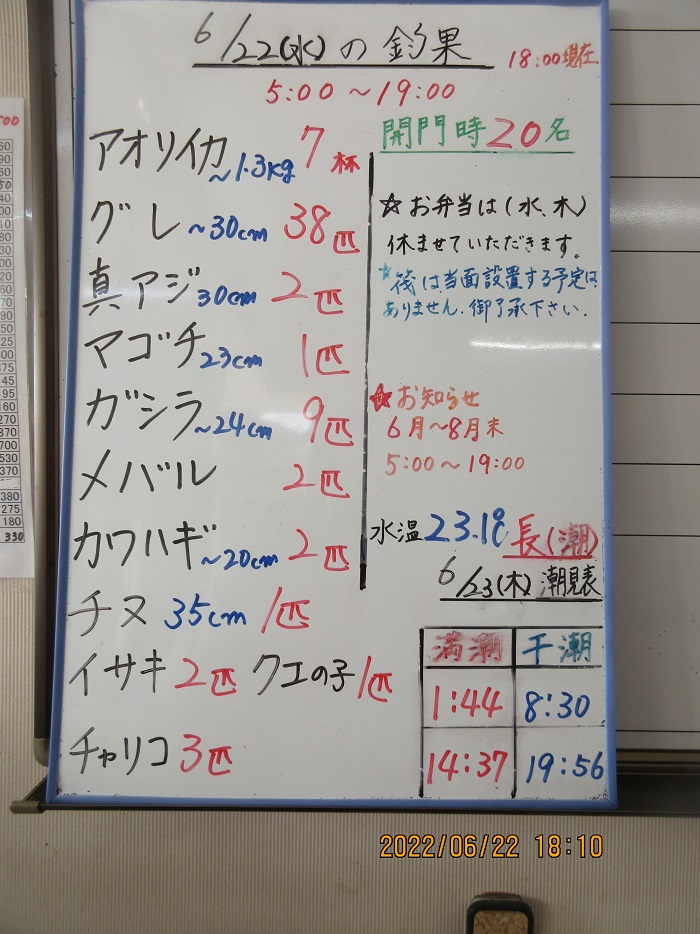 6/22(水)の釣果
18:00現在
5:00～19:00
アオリイカ ～1.3kg 7杯
グレ ～30cm 38匹
真アジ 30cm 2匹
マゴチ 23cm 1匹
ガシラ ～24cm 9匹
メバル 2匹
カワハギ ～20cm 2匹
チヌ 35cm 1匹
イサキ 2匹 クエの子 1匹
チャリコ 3匹
開門時20名
☆お弁当は(水、木)
休ませていただきます。
☆筏は当面設置する予定は
ありません.御了承下さい.
☆お知らせ
6月～8月末
5:00～19:00
水温23.1℃ 長(潮)
6/23(木)潮見表
満潮 干潮
1:44 8:30
14:37 19:56
2022/06/22 18:10
500
380
275
180
330